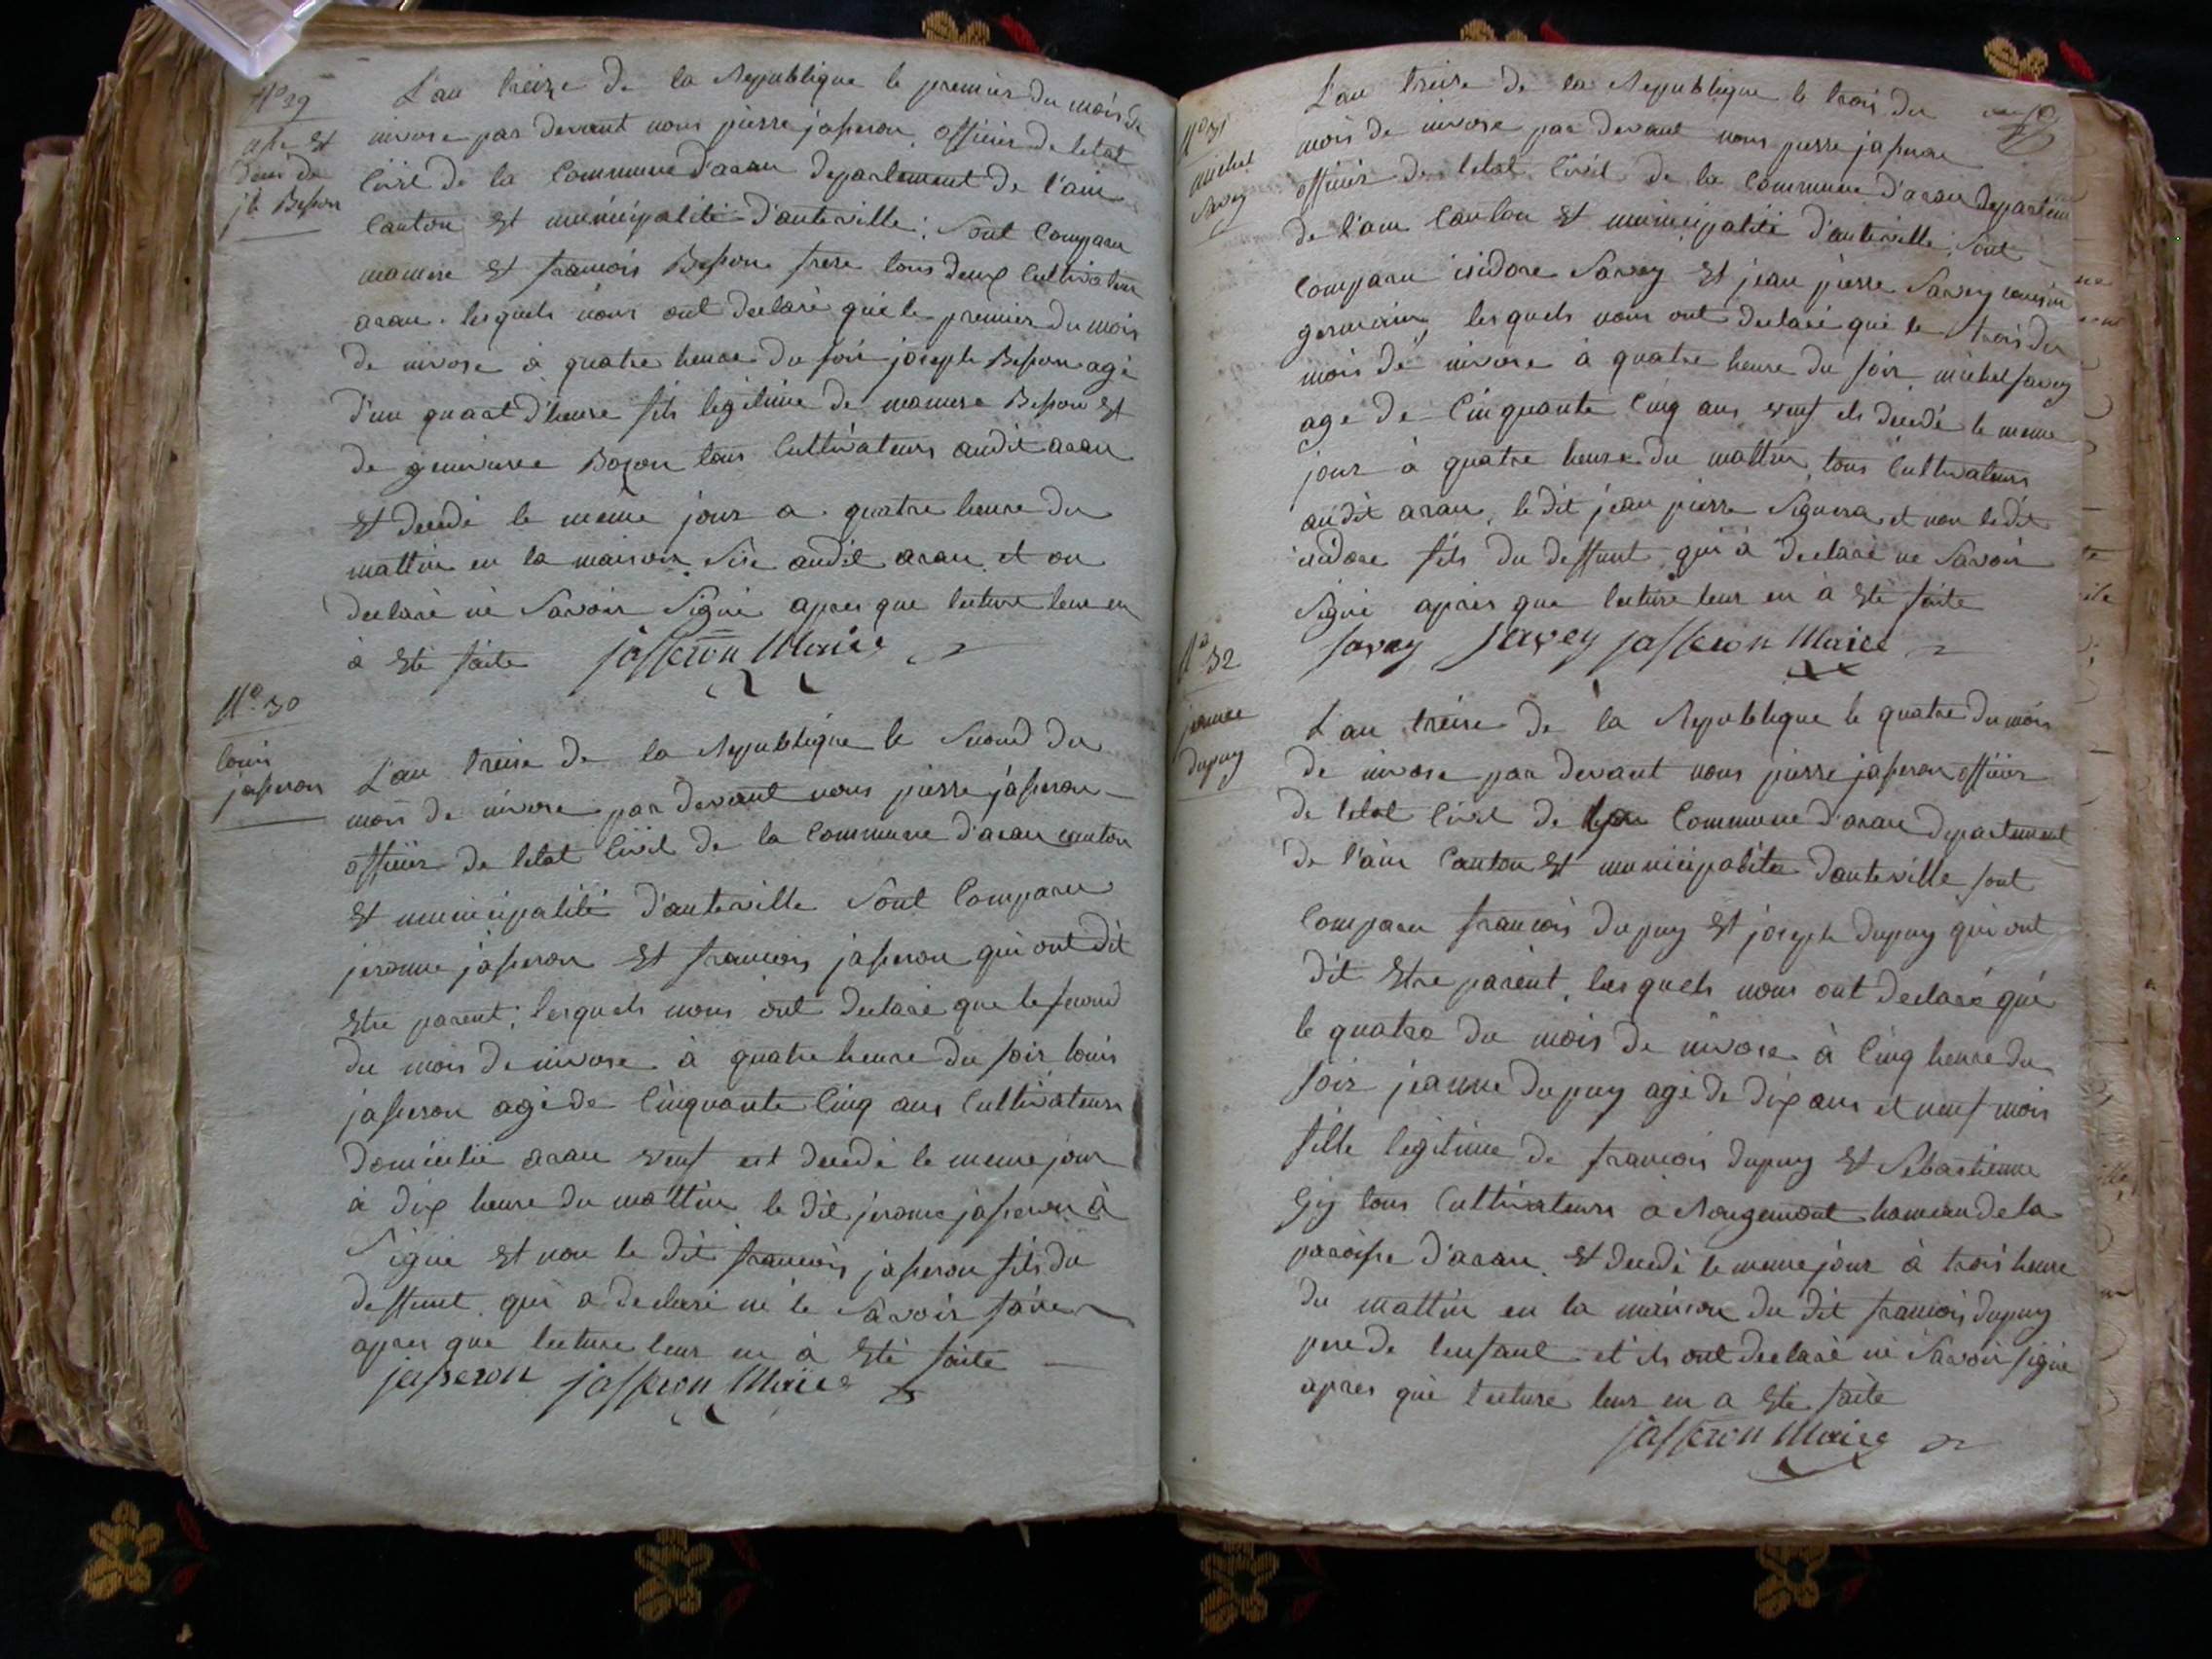 N° 29
acte Et
deces de
jh Besson
L'an treize de la Republique le premier du mois de
nivose par devant nous pierre jasseron officier de letat
Civil de la Commune d'aran departement de l'ain
Canton Et municipalité d'auteville. Sont Comparu
mamere Et francois Besson frere tous deux Cultivateur
aran. lesquels nous ont declaré que le premier du mois
de nivose à quatre heure du soir joseph Besson agé
d'un quart d'heure fils legitime de mamere Besson Et
de genevieve Bozon tous Cultivateurs audit aran
Et decedé le même jour a quatre heure du
mattin en la maison sise audit aran et on
declaré ne Savoir Signé apres que lecture leur en
à Eté faite jasseron Maire
N° 30
louis
jasseron
L'an treise de la Republique le Second du
mois de nivose par devant nous pierre jasseron
officier de letat Civil de la Commune d'aran canton
Et municipalité d'auteville Sont Comparu
jerome jasseron Et francois jasseron qui ont dit
Etre parent, lesquels nous ont declaré que le second
du mois de nivose à quatre heure du soir louis
jasseron agé de Cinquante Cinq ans Cultivateurs
domicilié aran veuf est decedé le meme jour
à dix heure du mattin le dit jerome jasseron à
Signé Et non le dit francois jasseron fils du
deffunt qui a declaré ne le savoir faire
apres que lecture leur en à Eté faite
jasseron jasseron Maire
N° 31
michel
Savey
L'an treise de la Republique le trois du
mois de nivose par devant nous pierre jasseron
officier de letat Civil de la Commune d'aran departem
de l'ain Canton Et municipalité d'auteville, Sont
Comparu isidore Savey Et jean pierre Savey cousin
germain, lesquels nous ont declaré que le trois du
mois de nivose à quatre heure du soir michel savey
age de Cinquante Cinq ans veuf Et decedé le meme
jour à quatre heure du mattin, tous Cultivateurs
audit aran, le dit jean pierre Signera et non le dit
isidore fils du deffunt qui à declaré ne Savoir
Signé apres que lecture leur en à Eté faite
Savey Savey jasseron Maire
N° 32
jeanne
dupuy
L'an treise de la Republique le quatre du mois
de nivose par devant nous pierre jasseron officier
de letat Civil de la Commune d'aran departement
de l'ain Canton Et municipalitee d'auteville sont
Comparu francois dupuy Et joseph dupuy qui ont
dit Etre parent, lesquels nous ont declaré que
le quatre du mois de nivose à Cinq heure du
soir jeanne dupuy agé de dix ans et neuf mois
fille legitime de francois dupuy Et Sebastienne
Gij tous Cultivateurs à Rougemont hameau de la
paroisse d'aran. Et decedé le meme jour à trois heure
du mattin en la maison du dit francois dupuy
pere de lenfant et ils ont declaré ne Savoir signé
apres que lecture leur en a Eté faite
jasseron Maire